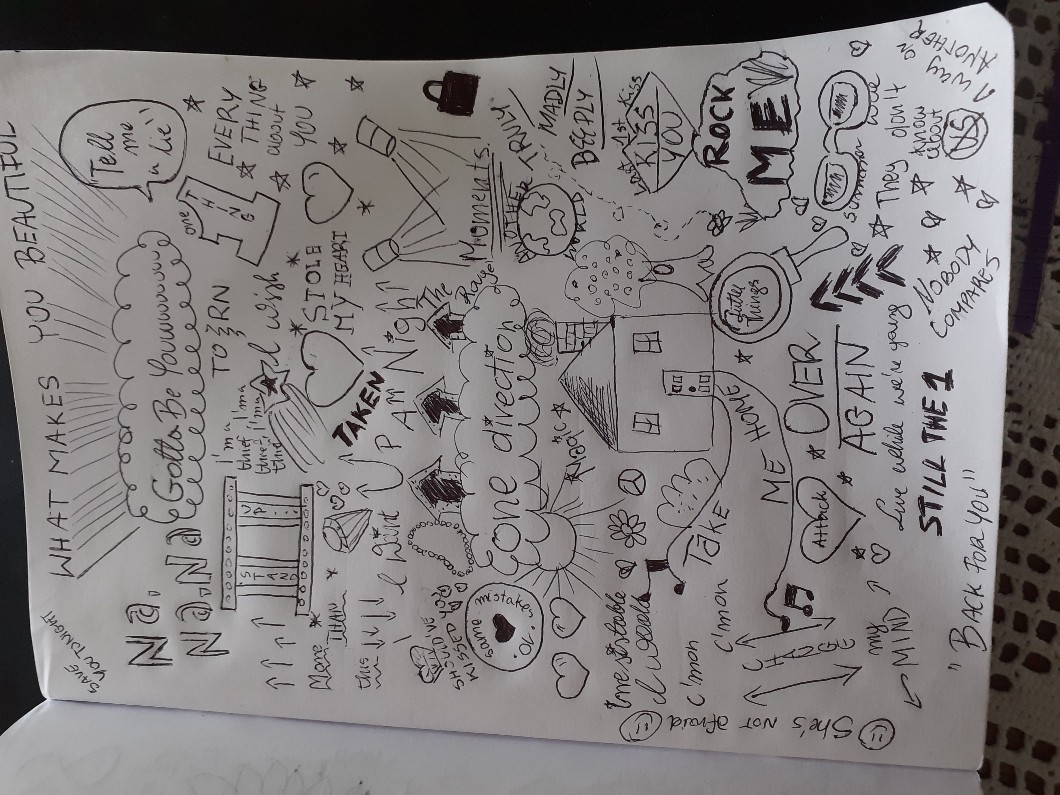 WHAT MAKES YOU BEAUTIFUL
SAVE
YOU TONIGHT
Tell
me
a lie"
Gotta Be Youuuuuuu
Na,
Na, Na
one
THING
EVERY
THING
about
YOU
TORN
I wish
STOLE
MY HEART
I'm a
thief I'ma
thief, I'ma
thief
STAND
UP
TAKEN
More
THAN
this
I Want
UP All Night
The
Same
mistakes
SHOULD'VE
KISSED YOU
one direction
Moments
TRULY
MADLY
DEEPLY
ANOTHER
WORLD
last 1st Kiss
KISS
YOU
ROCK
ME
summer
love
Little
Things
They don't
know
about
US
ON
ANOTHER
WAY
NOBODY
COMPARES
TAKE
ME HOME
OVER
AGAIN
Heart
Attack
Irresistible
I would
C'mon
C'mon
She's NOT afraid
CHANGE
my
MIND
Live while we're young
STILL THE 1
"BACK FOR YOU"